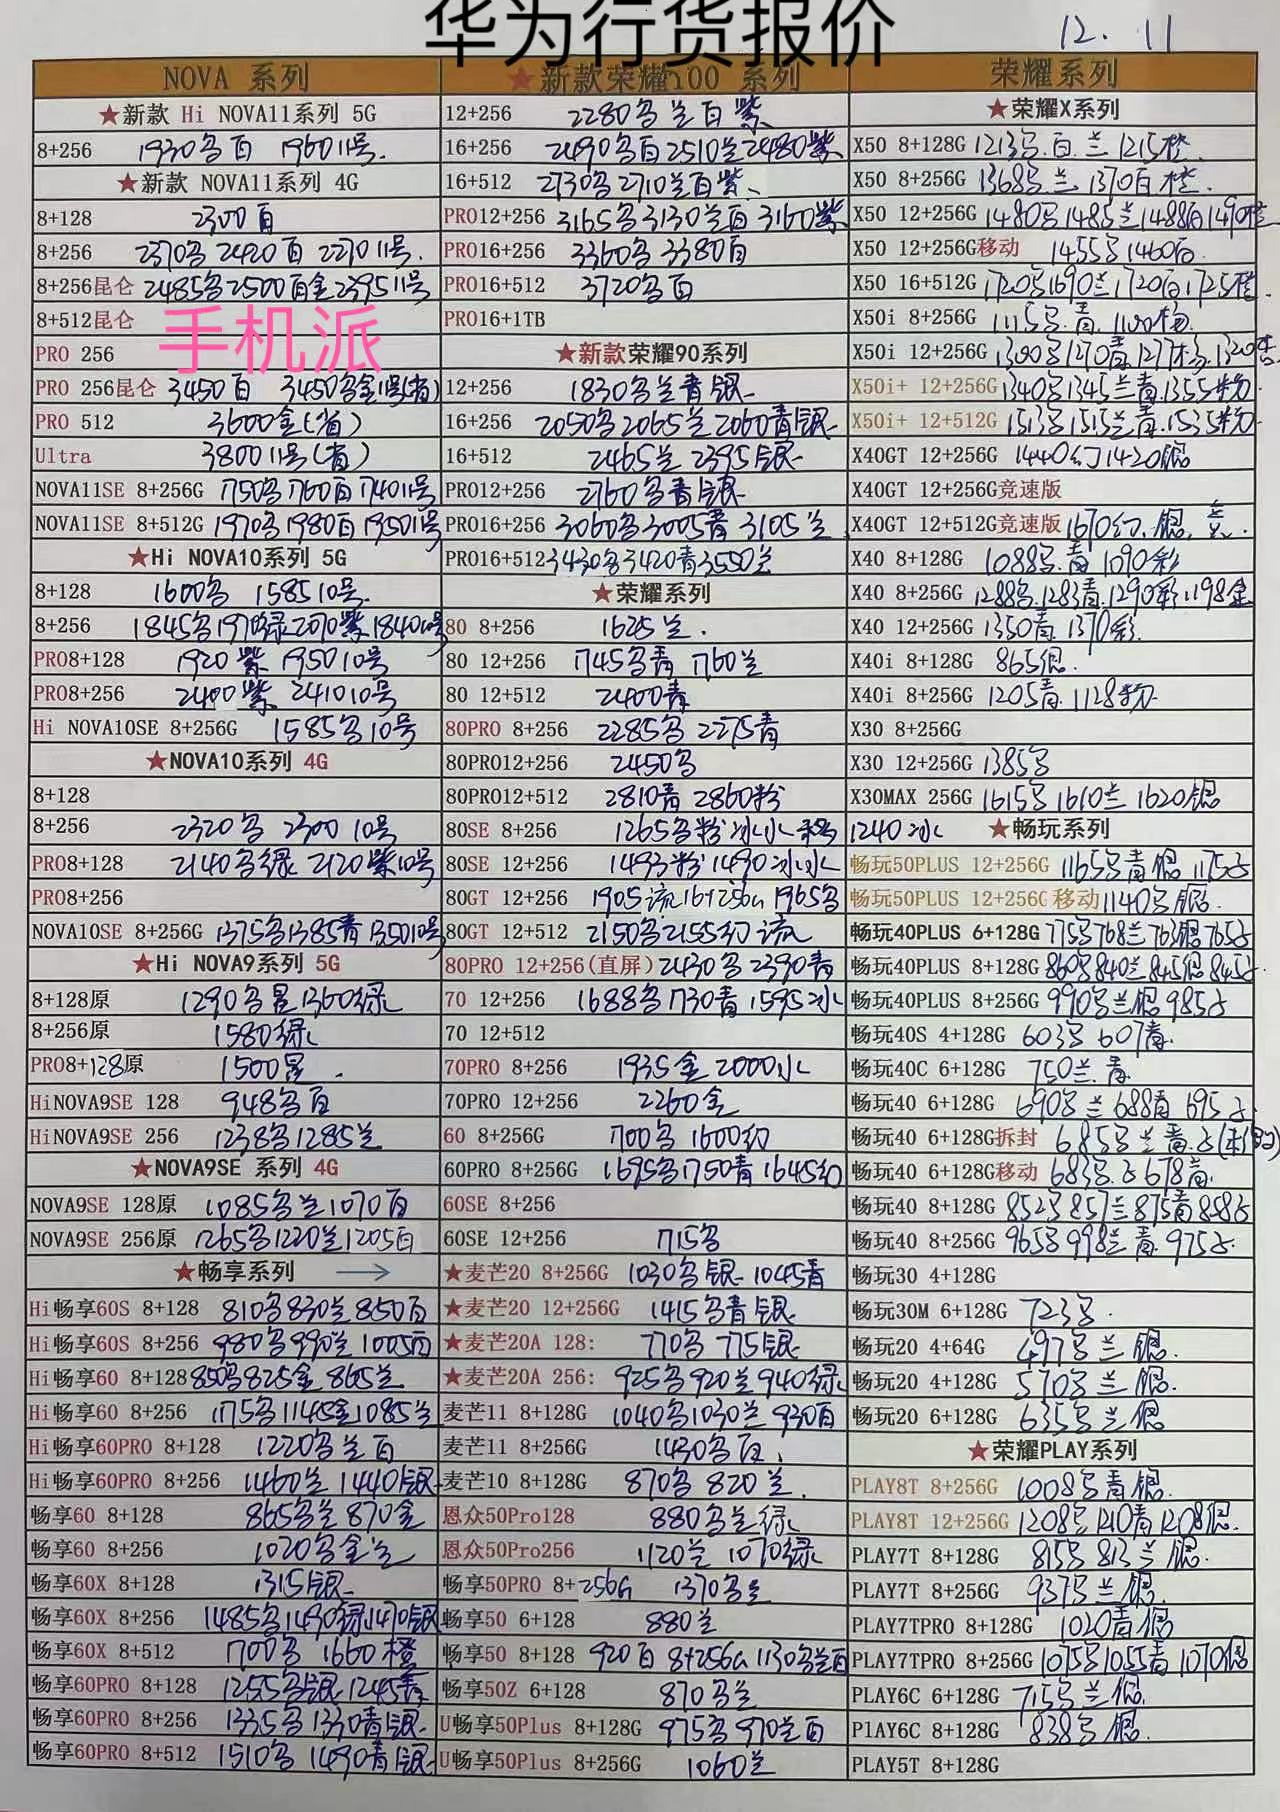 华为行货报价
12.11
NOVA 系列
★新款 Hi NOVA11系列 5G
8+256 1930名百 1960 11号.
★新款 NOVA11系列 4G
8+128 2300百
8+256 2370名 2420百 2270 11号.
8+256昆仑 2485名2500百金2395 11号
8+512昆仑
手机派
PRO 256
PRO 256昆仑 3450百 3450名金11号(省)
PRO 512 3600金(省)
Ultra 3800 11号(省)
NOVA11SE 8+256G 1750名1760百1740 11号
NOVA11SE 8+512G 1970名1980百1950 11号
★Hi NOVA10系列 5G
8+128 1600名 1585 10号.
8+256 1845名1970绿2070紫1840 10号
PRO8+128 1920紫 1950 10号
PRO8+256 2400紫 2410 10号
Hi NOVA10SE 8+256G 1585名10号
★NOVA10系列 4G
8+128
8+256 2320名 2300 10号
PRO8+128 2140名绿 2120紫10号
PRO8+256
NOVA10SE 8+256G 1375名1385青1350 10号
★Hi NOVA9系列 5G
8+128原 1290名星1360绿
8+256原 1580绿
PRO8+128原 1500星.
HiNOVA9SE 128 948名百
HiNOVA9SE 256 1238名1285兰
★NOVA9SE 系列 4G
NOVA9SE 128原 1085名兰1070百
NOVA9SE 256原 1265名1220兰1205百
★畅享系列
Hi畅享60S 8+128 810名830兰850百
Hi畅享60S 8+256 980名990兰1005百
Hi畅享60 8+128 850名825金865兰
Hi畅享60 8+256 1175名1145金1085兰
Hi畅享60PRO 8+128 1220名兰百
Hi畅享60PRO 8+256 1460兰 1440银
畅享60 8+128 865名兰870金
畅享60 8+256 1020名金兰
畅享60X 8+128 1315银
畅享60X 8+256 1485名1490绿1470银
畅享60X 8+512 1700名 1660橙
畅享60PRO 8+128 1255名银1245青
畅享60PRO 8+256 1335名1330青银
畅享60PRO 8+512 1510名 1490青银
★新款荣耀100 系列
12+256 2280名兰百紫
16+256 2490名百2510兰2480紫
16+512 2730名2710兰百紫
PRO12+256 3165名3130兰百3160紫
PRO16+256 3360名3380百
PRO16+512 3720名百
PRO16+1TB
★新款荣耀90系列
12+256 1830名兰青银
16+256 2050名2065兰2060青银
16+512 2465兰2395银
PRO12+256 2760名青银
PRO16+256 3060名3005青 3105兰
PRO16+512 3430名3420青3550兰
★荣耀系列
80 8+256 1625兰.
80 12+256 1745名青 1760兰
80 12+512 2400青
80PRO 8+256 2285名 2275青
80PRO12+256 2450名
80PRO12+512 2810青 2860粉
80SE 8+256 1265名粉冰水 移 1240冰
80SE 12+256 1493粉1490冰水
80GT 12+256 1905流16+256G 1965名
80GT 12+512 2150名2155幻流
80PRO 12+256(直屏) 2430名2390青
70 12+256 1688名1730青1595冰
70 12+512
70PRO 8+256 1935金2000水
70PRO 12+256 2260金
60 8+256G 1700名 1600幻
60PRO 8+256G 1695名1750青1645幻
60SE 8+256
60SE 12+256 1715名
★麦芒20 8+256G 1030名银 1045青
★麦芒20 12+256G 1415名青银
★麦芒20A 128: 770名 775银
★麦芒20A 256: 925名920兰940绿
麦芒11 8+128G 1040名1030兰930百
麦芒11 8+256G 1430名百
麦芒10 8+128G 870名 820兰.
恩众50Pro128 880名兰绿
恩众50Pro256 1120兰 1070绿
畅享50PRO 8+256G 1370名兰
畅享50 6+128 880兰
畅享50 8+128 920百 8+256G 1130名兰百
畅享50Z 6+128 870名兰
U畅享50Plus 8+128G 975名970兰百
U畅享50Plus 8+256G 1060兰
荣耀系列
★荣耀X系列
X50 8+128G 1213名.百.兰1215橙
X50 8+256G 1368名.兰1370百橙.
X50 12+256G 1480名1485兰1488百1490橙
X50 12+256G移动 1455名1460百.
X50 16+512G 1720名1690兰1720百1725橙
X50i 8+256G 1115名.青.1100杨
X50i 12+256G 1300名1270青1277杨.1320
X50i+ 12+256G 1340名1345兰青.1355粉
X50i+ 12+512G 1513名1515兰青.1535粉
X40GT 12+256G 1440幻1420银
X40GT 12+256G竞速版
X40GT 12+512G竞速版 1670幻.银.
X40 8+128G 1088名.青1090彩
X40 8+256G 1288名.1283青.1290彩1198金
X40 12+256G 1350青.1370彩.
X40i 8+128G 865银.
X40i 8+256G 1205青.1128粉
X30 8+256G
X30 12+256G 1385名
X30MAX 256G 1615名1610兰1620银
★畅玩系列
畅玩50PLUS 12+256G 1165名青银1175
畅玩50PLUS 12+256G移动 1140名银.
畅玩40PLUS 6+128G 775名768兰763银765
畅玩40PLUS 8+128G 860名840兰845银845
畅玩40PLUS 8+256G 990名兰银985
畅玩40S 4+128G 603名607青.
畅玩40C 6+128G 750兰.青
畅玩40 6+128G 690名兰688青695
畅玩40 6+128G拆封 685名兰青
畅玩40 6+128G移动 683名 678青
畅玩40 8+128G 852名857兰875青858
畅玩40 8+256G 965名998兰青.975
畅玩30 4+128G
畅玩30M 6+128G 723名.
畅玩20 4+64G 497名兰银.
畅玩20 4+128G 570名兰银.
畅玩20 6+128G 635名兰银
★荣耀PLAY系列
PLAY8T 8+256G 1008名青银.
PLAY8T 12+256G 1208名1210青1208银.
PLAY7T 8+128G 815名813兰银.
PLAY7T 8+256G 937名兰银.
PLAY7TPRO 8+128G 1020青银
PLAY7TPRO 8+256G 1075名1055青1070银
PLAY6C 6+128G 715名兰银.
PlAY6C 8+128G 838名银.
PLAY5T 8+128G